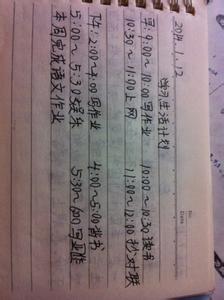 No.
Date
2014.1.12
学习生活计划
早:9:00~10:00写作业 10:00~10:30读书
10:30~11:00上网 11:00~12:00抄对联
下午:2:00~4:00写作业 4:00~5:00背书
5:00~5:30娱乐 5:30~6:00写作业
本周完成语文作业